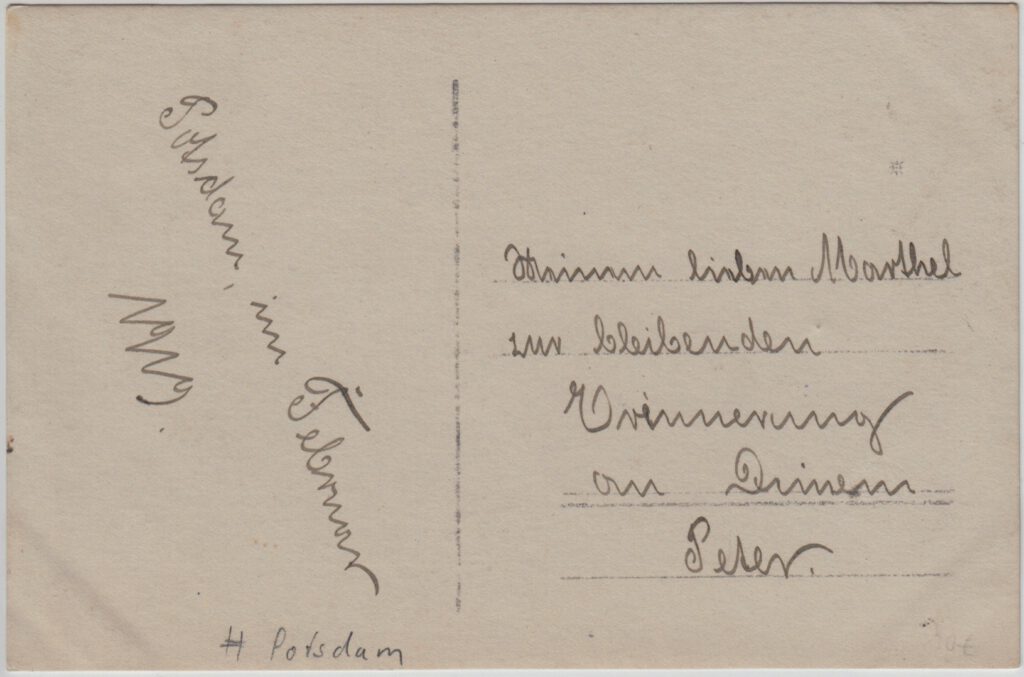 Potsdam, im Februar
1919.
Meinem lieben Marthel
zur bleibenden
Erinnerung
an Deinem
Peter.
# Potsdam